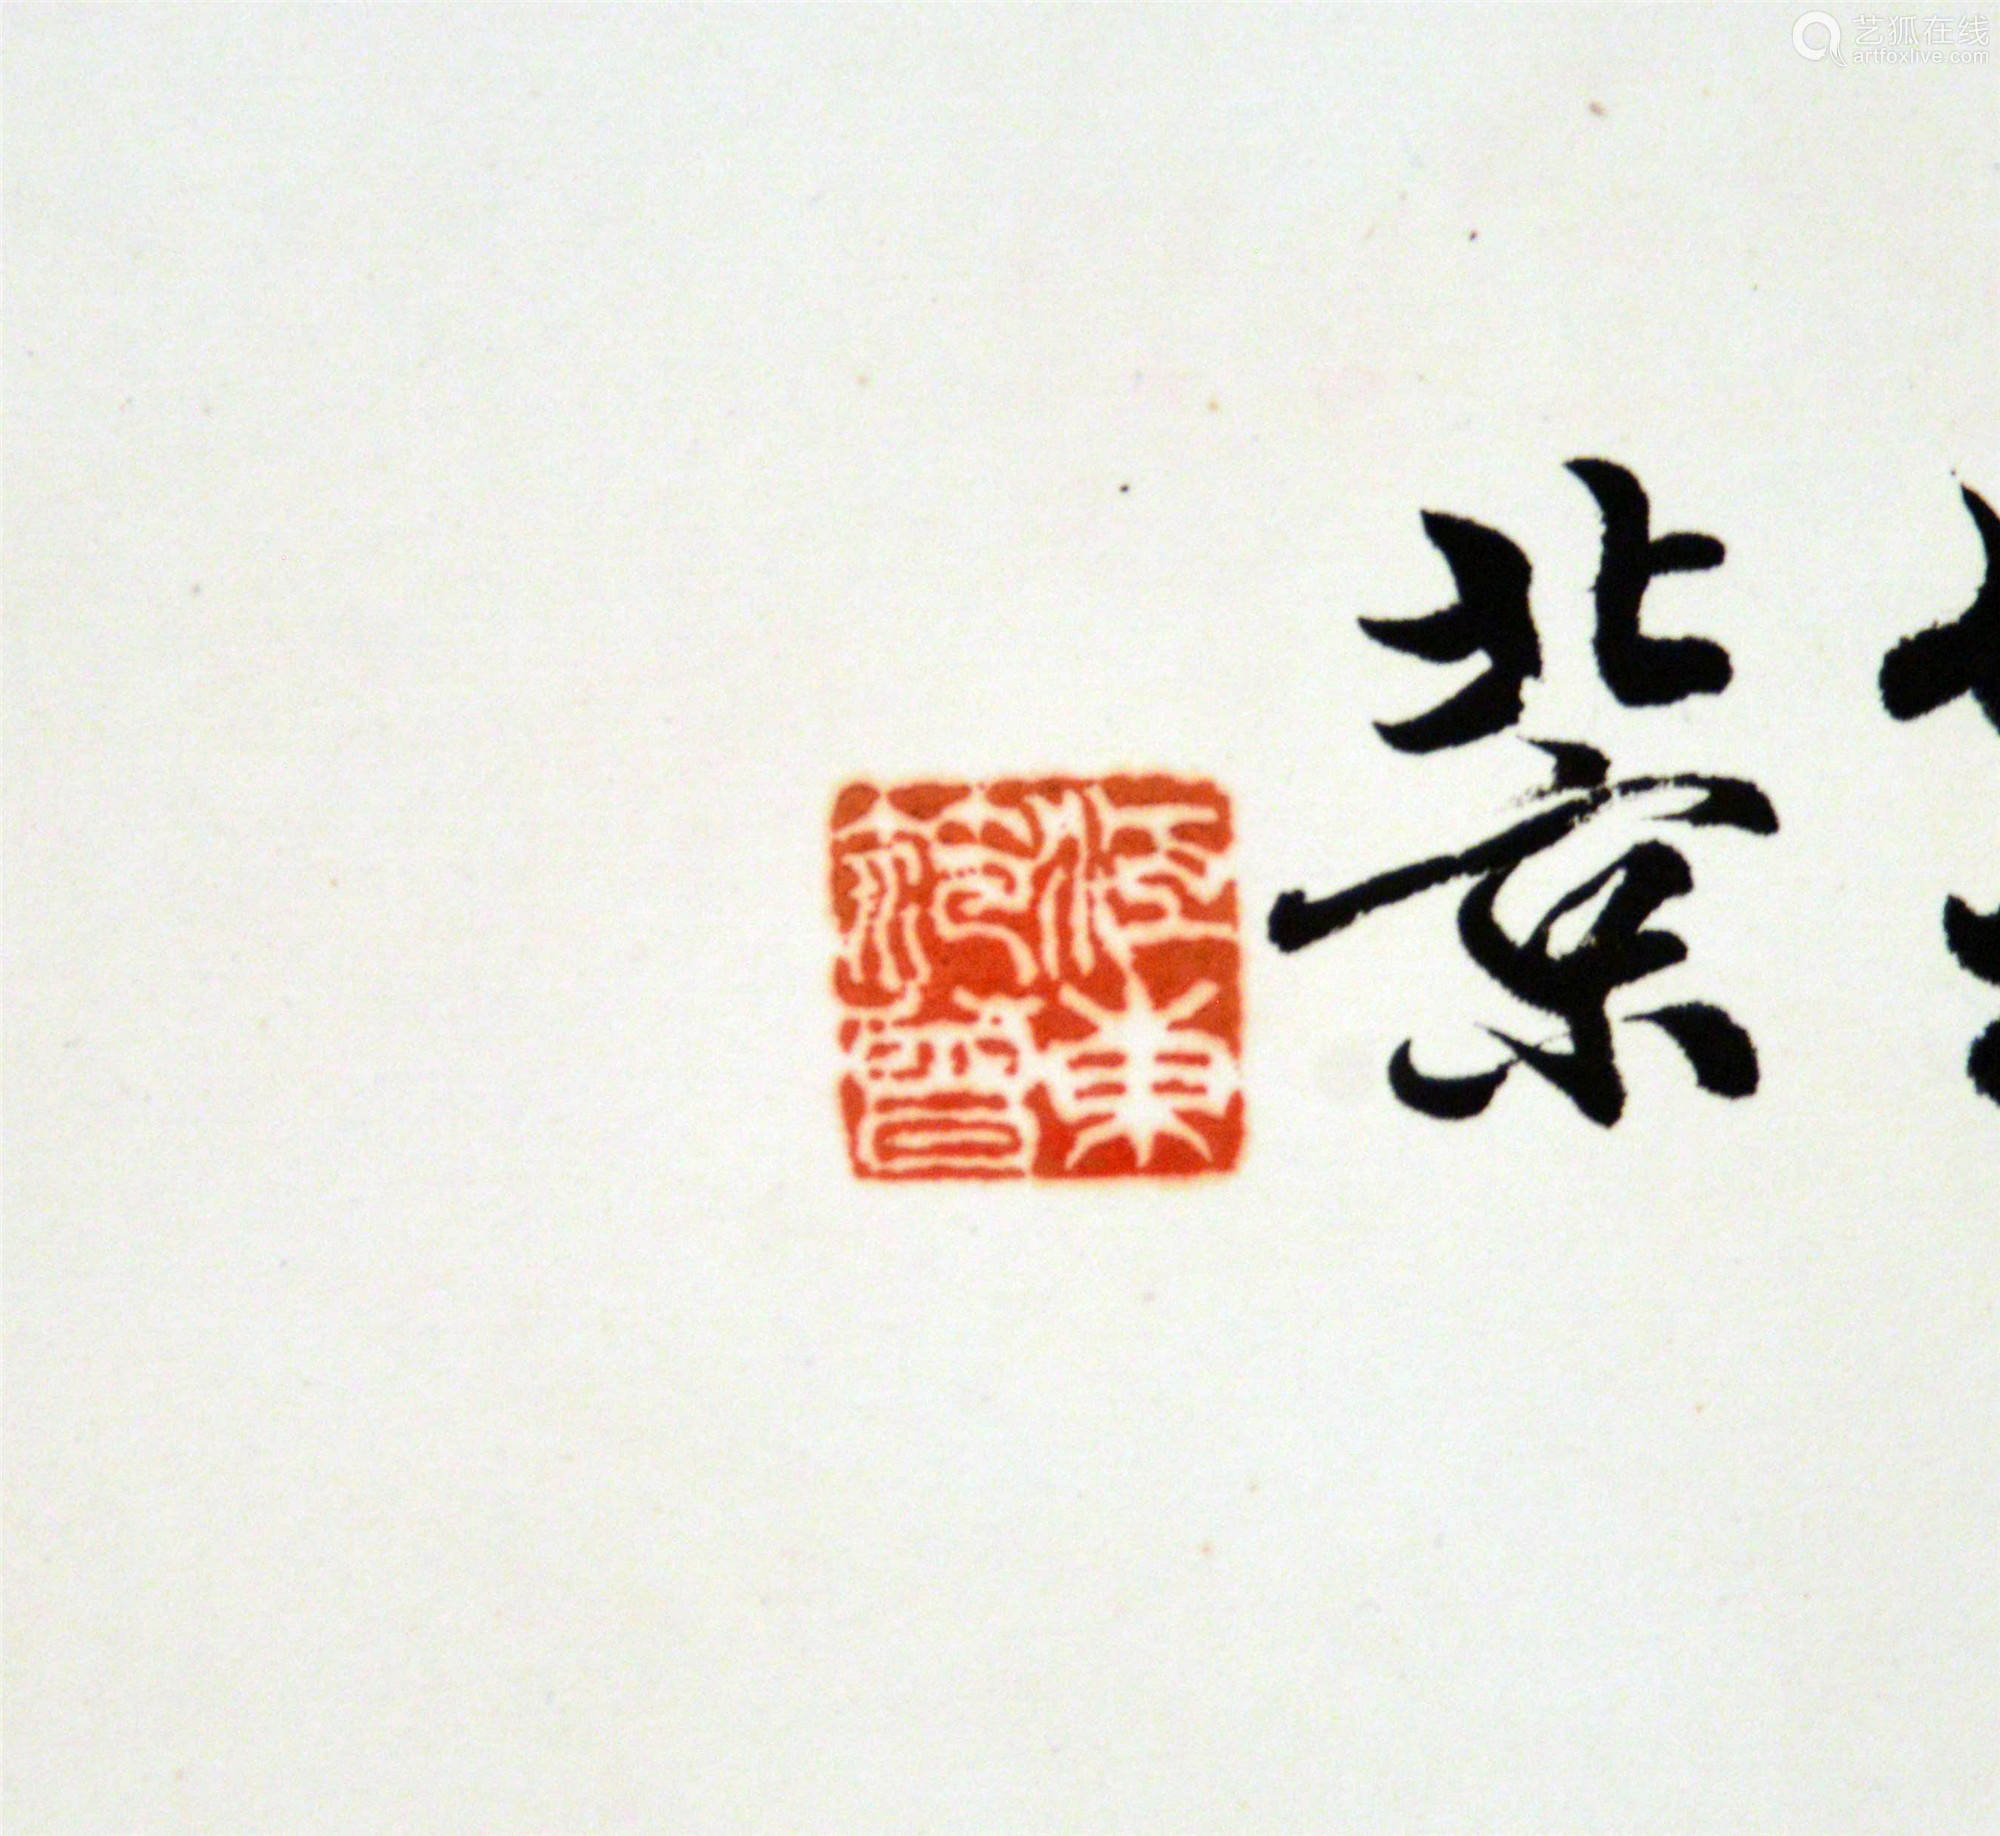 艺狐在线
artfoxlive.com
北京
江東
范曾